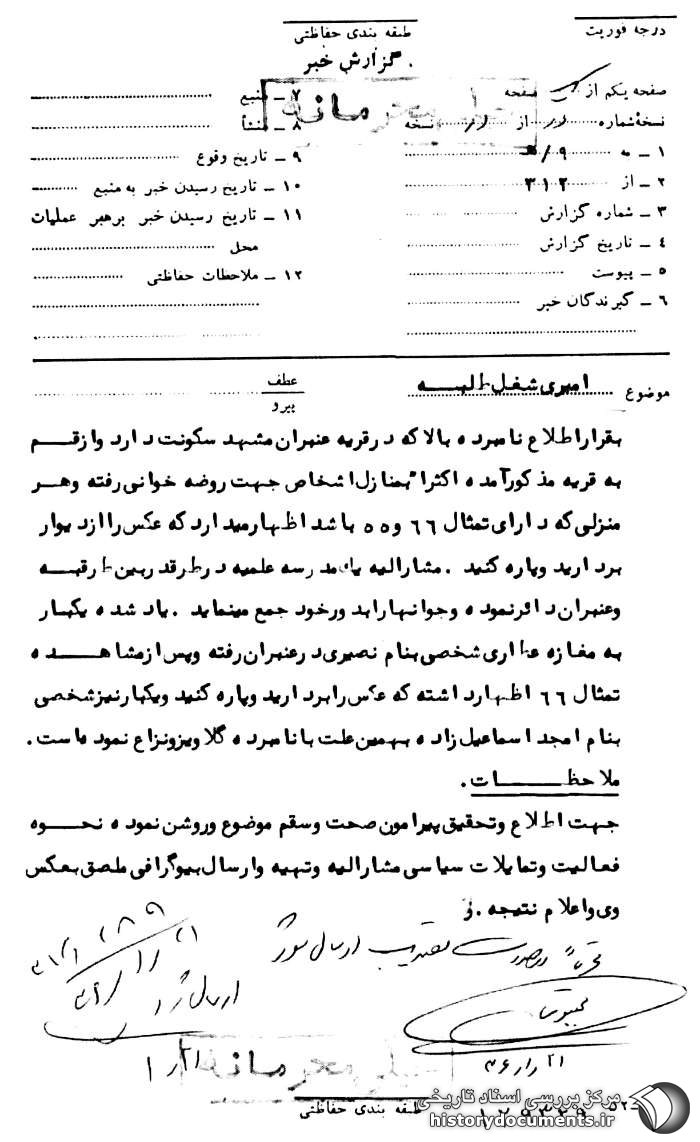 درجه فوریت
طبقه بندی حفاظتی
گزارش خبر
صفحه یکم از صفحه ۱
نسخهٔ شماره ۱۱ از ۱۱ نسخه
۱ ـ به ۹/ه
۲ ـ از ۳۱۲
۳ ـ شماره گزارش
۴ ـ تاریخ گزارش
۵ ـ پیوست
۶ ـ گیرندگان خبر
۷ ـ منبع
۸ ـ منشأ
۹ ـ تاریخ وقوع
۱۰ ـ تاریخ رسیدن خبر به منبع
۱۱ ـ تاریخ رسیدن خبر برهبر عملیات
محل
۱۲ ـ ملاحظات حفاظتی
خیلی محرمانه
موضوع امیری شغل طلبه
عطف
پیرو
بقرار اطلاع نامبرده بالا که در قریه عنبران مشهد سکونت دارد و از قم
به قریه مذکور آمده اکثرا بمنازل اشخاص جهت روضه خوانی رفته و هر
منزلی که دارای تمثال ۶۶ و ۵۵ باشد اظهار میدارد که عکس را از دیوار
بردارید و پاره کنید . مشارالیه یک مدرسه علمیه در طرقدر بین طرقبه
و عنبران دائر نموده و جوانها را بدور خود جمع مینماید . یاد شده یکبار
به مغازه عطاری شخصی بنام نصیری در عنبران رفته و پس از مشاهده
تمثال ۶۶ اظهار داشته که عکس را بردارید و پاره کنید و یکبار نیز شخصی
بنام امجد اسماعیل زاده بهمین علت با نامبرده گلاویز و نزاع نموده است .
ملاحظات .
جهت اطلاع و تحقیق پیرامون صحت و سقم موضوع و روشن نموده نحوه
فعالیت و تمایلات سیاسی مشارالیه و تهیه و ارسال بیوگرافی ملصق بعکس
وی و اعلام نتیجه .
در صورت تصویب ارسال شود
ارسال شد
خیلی محرمانه
طبقه بندی حفاظتی
مرکز بررسی اسناد تاریخی
historydocuments.ir